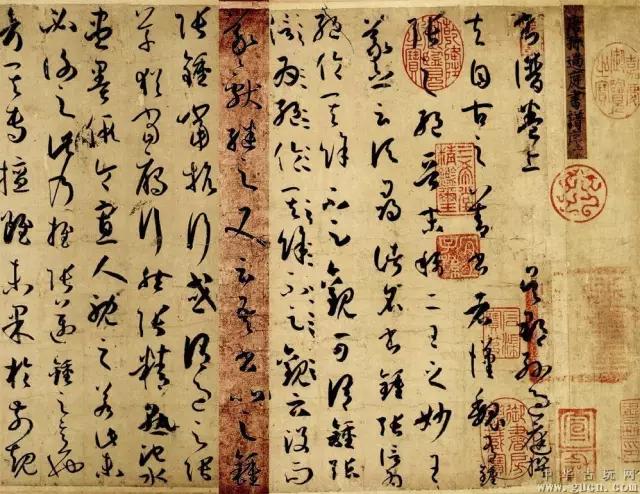 唐孫過庭書譜序
書譜卷上 吳郡孫過庭撰
夫自古之善書者漢魏有鍾
張之絕晉末稱二王之妙王
羲之云頃尋諸名書鍾張信為
絕倫其餘不足觀可謂鍾張
信為絕倫其餘不足觀云沒而
羲獻繼之又云吾書比之鍾
張鍾當抗行或謂過之張
草猶當雁行然張精熟池水
盡墨假令寡人耽之若此未
必謝之此乃推張邁鍾之意也
考其專擅雖未果於前規
中华古玩网
www.gucn.com